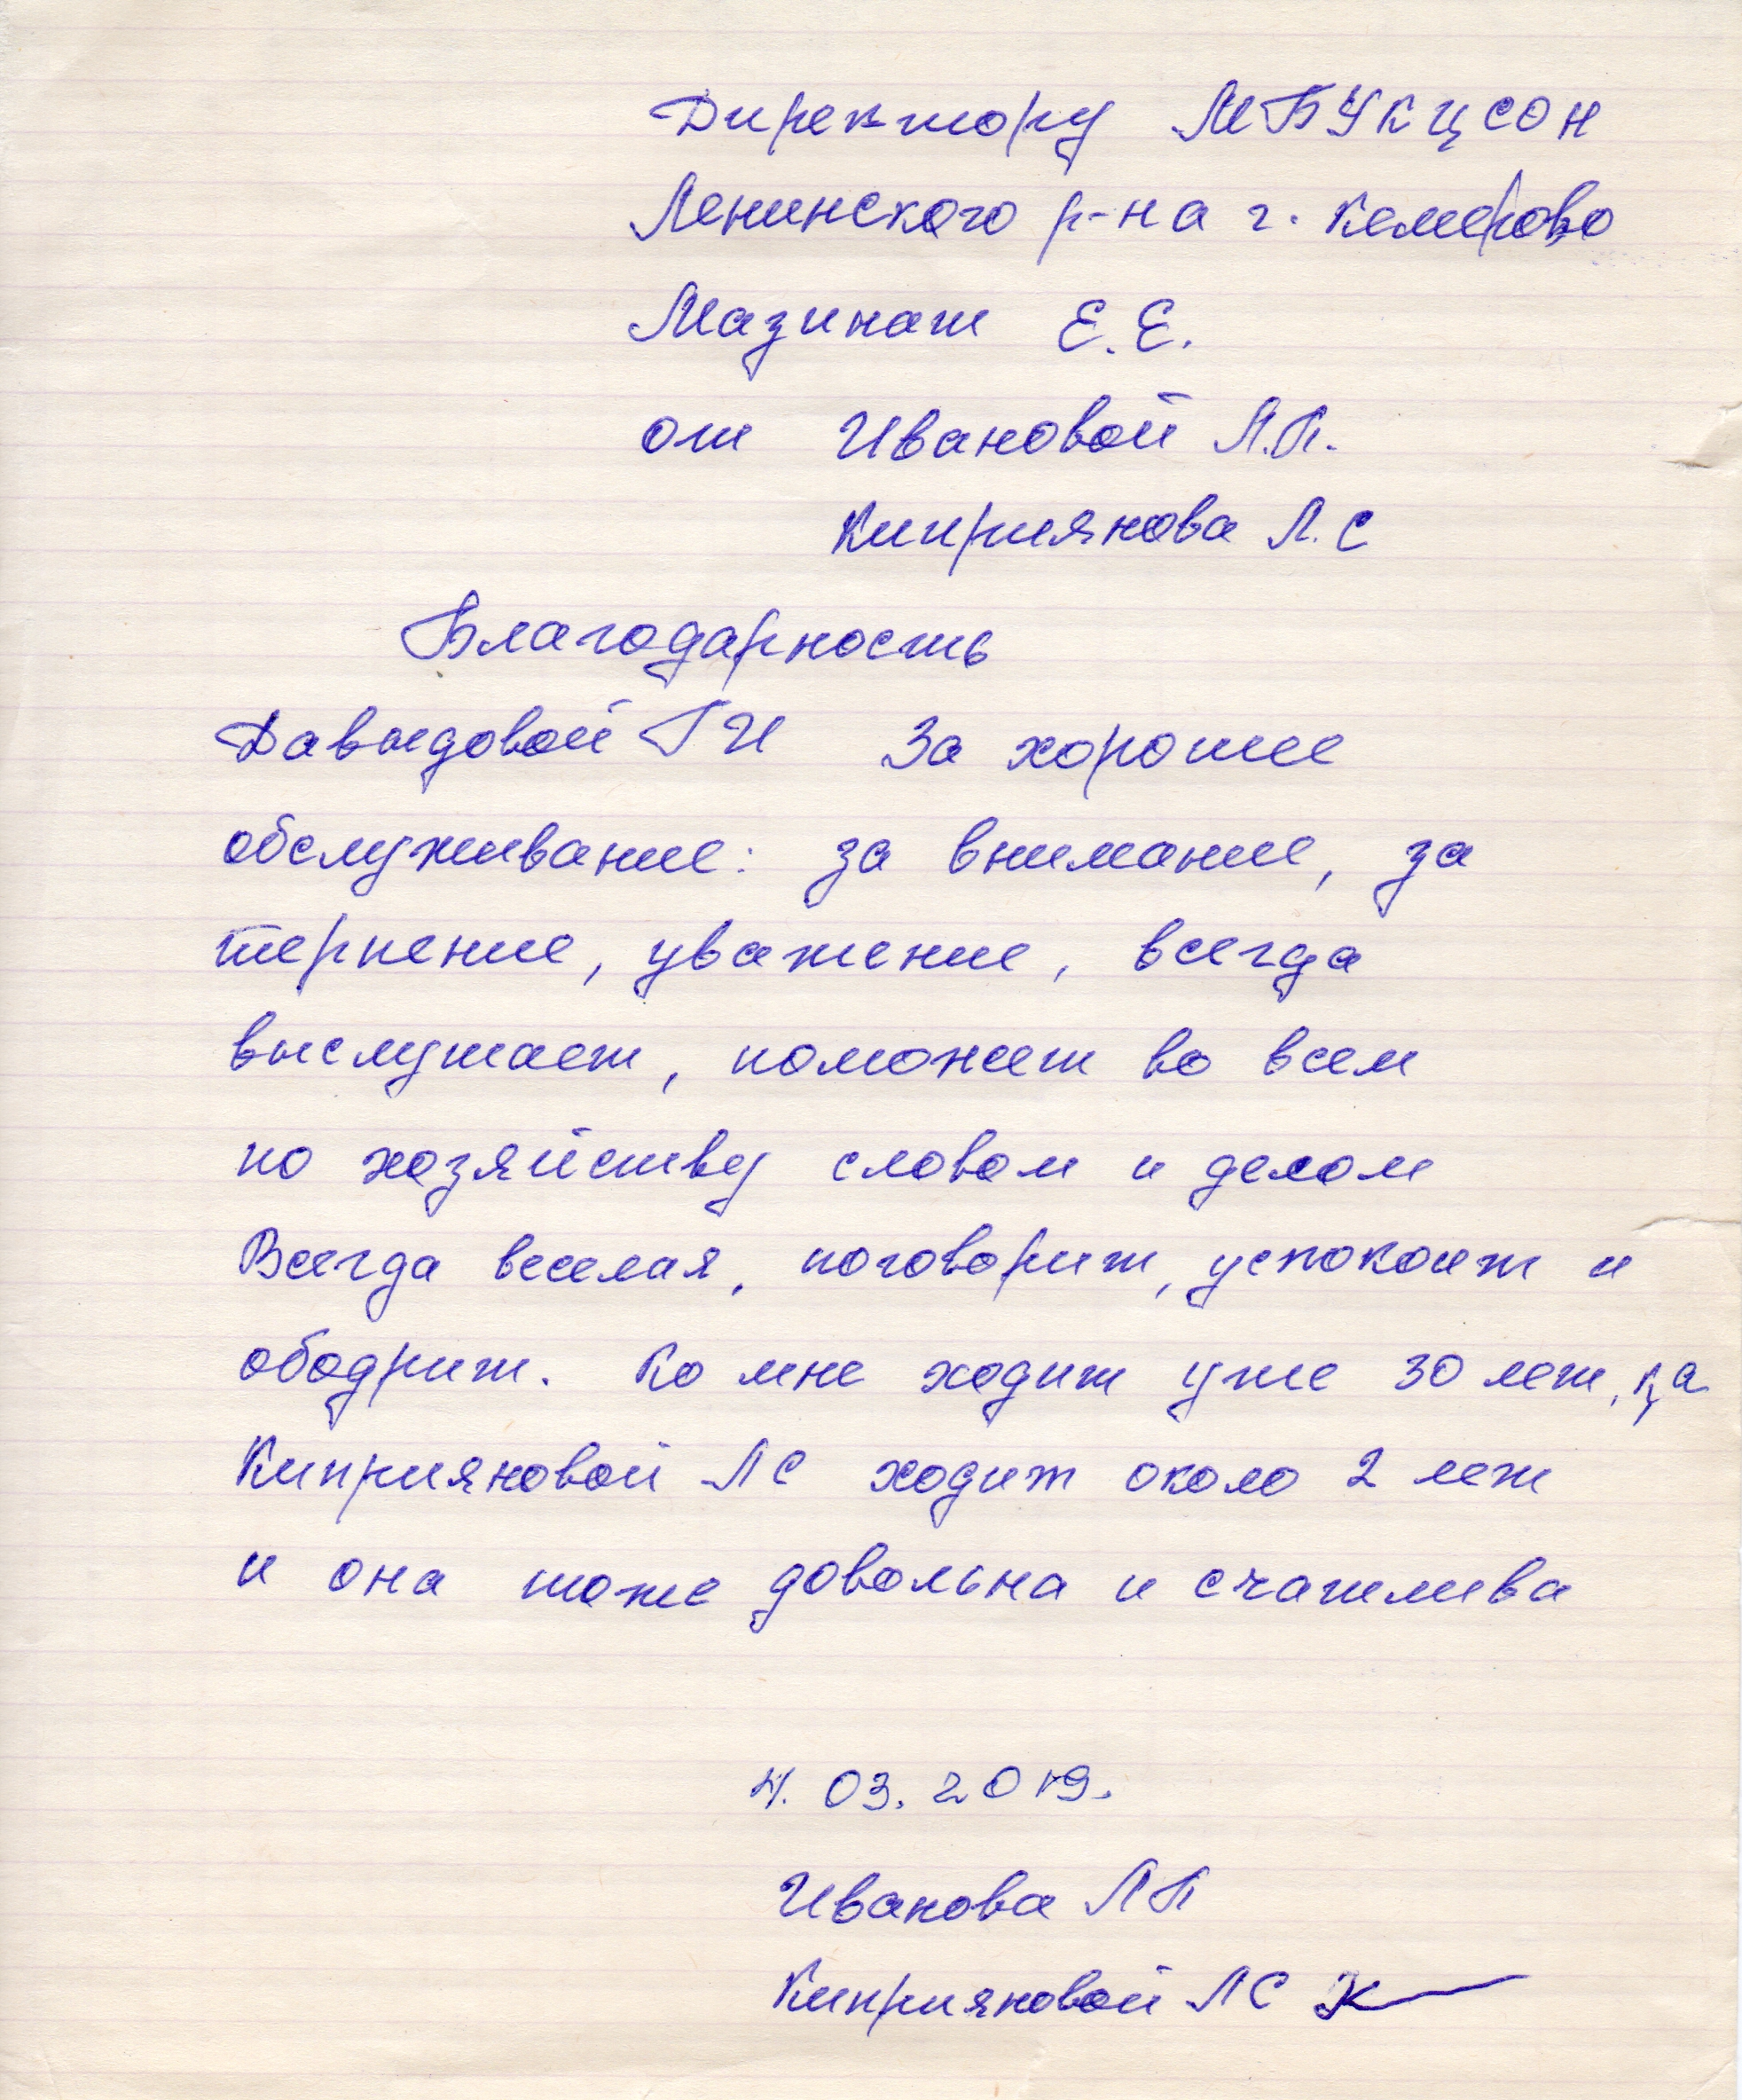 Директору МБУ КЦСОН
Ленинского р-на г. Кемерово
Мазикат Е.Е.
от Ивановой Л.П.
Киприянова Л.С
Благодарность
Давыдовой ГИ За хорошее
обслуживание: за внимание, за
терпение, уважение, всегда
выслушает, поможет во всем
по хозяйству словом и делом
Всегда веселая, поговорит, успокоит и
ободрит. Ко мне ходит уже 30 лет,
Киприяновой ЛС ходит около 2 лет
и она тоже довольна и счатлива
4. 03. 2019.
Иванова ЛП
Киприяновой ЛС